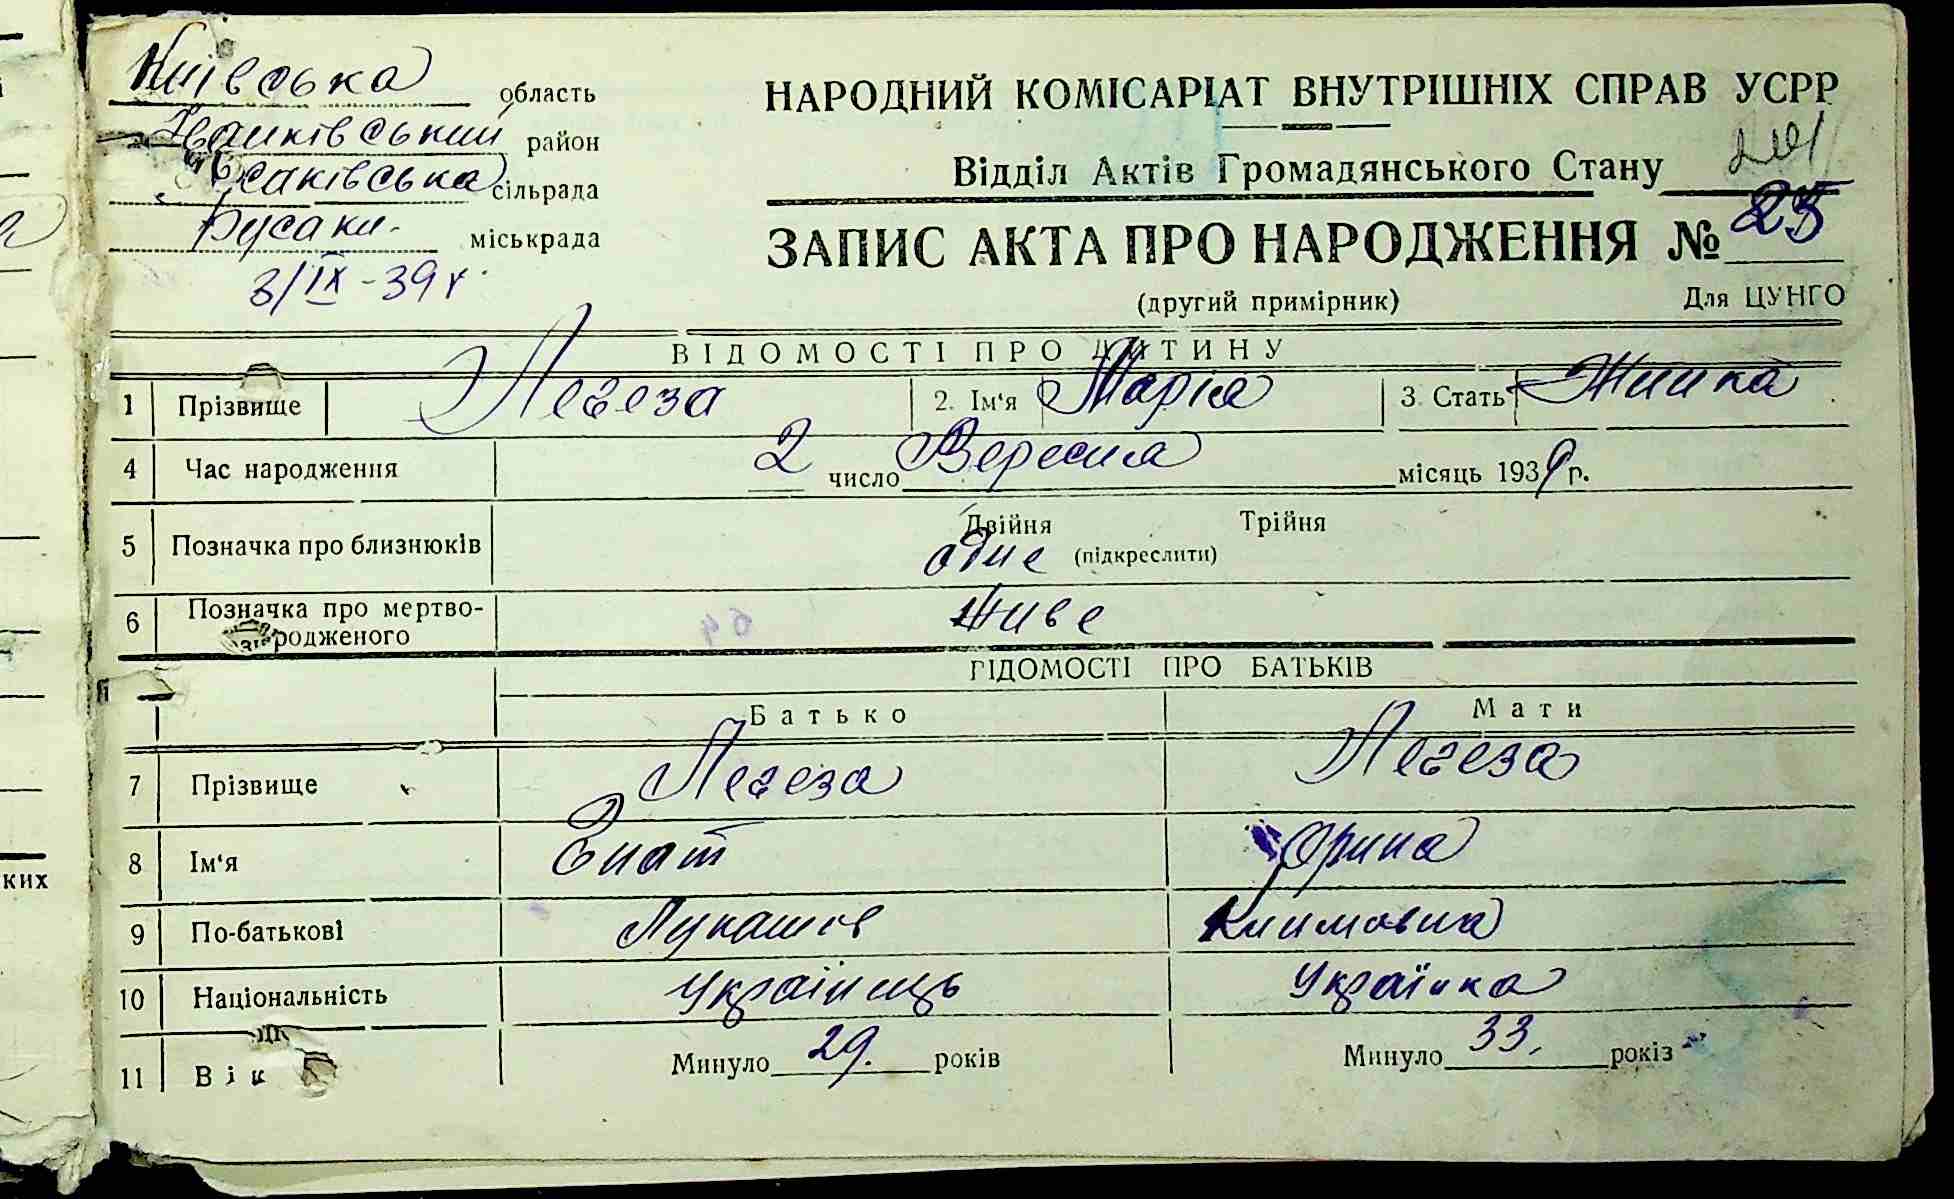 Київська область
Іванківський район
Бусаківська сільрада
Бусаки. міськрада
3/IX-39 г.
НАРОДНИЙ КОМІСАРІАТ ВНУТРІШНІХ СПРАВ УСРР
Відділ Актів Громадянського Стану
ЗАПИС АКТА ПРО НАРОДЖЕННЯ № 25
(другий примірник) Для ЦУНГО
ВІДОМОСТІ ПРО ДИТИНУ
1 Прізвище Легеза 2. Ім'я Марія 3. Стать Жінка
4 Час народження 2 число Вересня місяць 1939 р.
Двійня Трійня
5 Позначка про близнюків одне (підкреслити)
6 Позначка про мертво- живе
родженого
ВІДОМОСТІ ПРО БАТЬКІВ
Батько Мати
7 Прізвище Легеза Легеза
8 Ім'я Гнат Орина
9 По-батькові Лукашів Климовна
10 Національність Українець Українка
11 Вік Минуло 29. років Минуло 33. років
ких